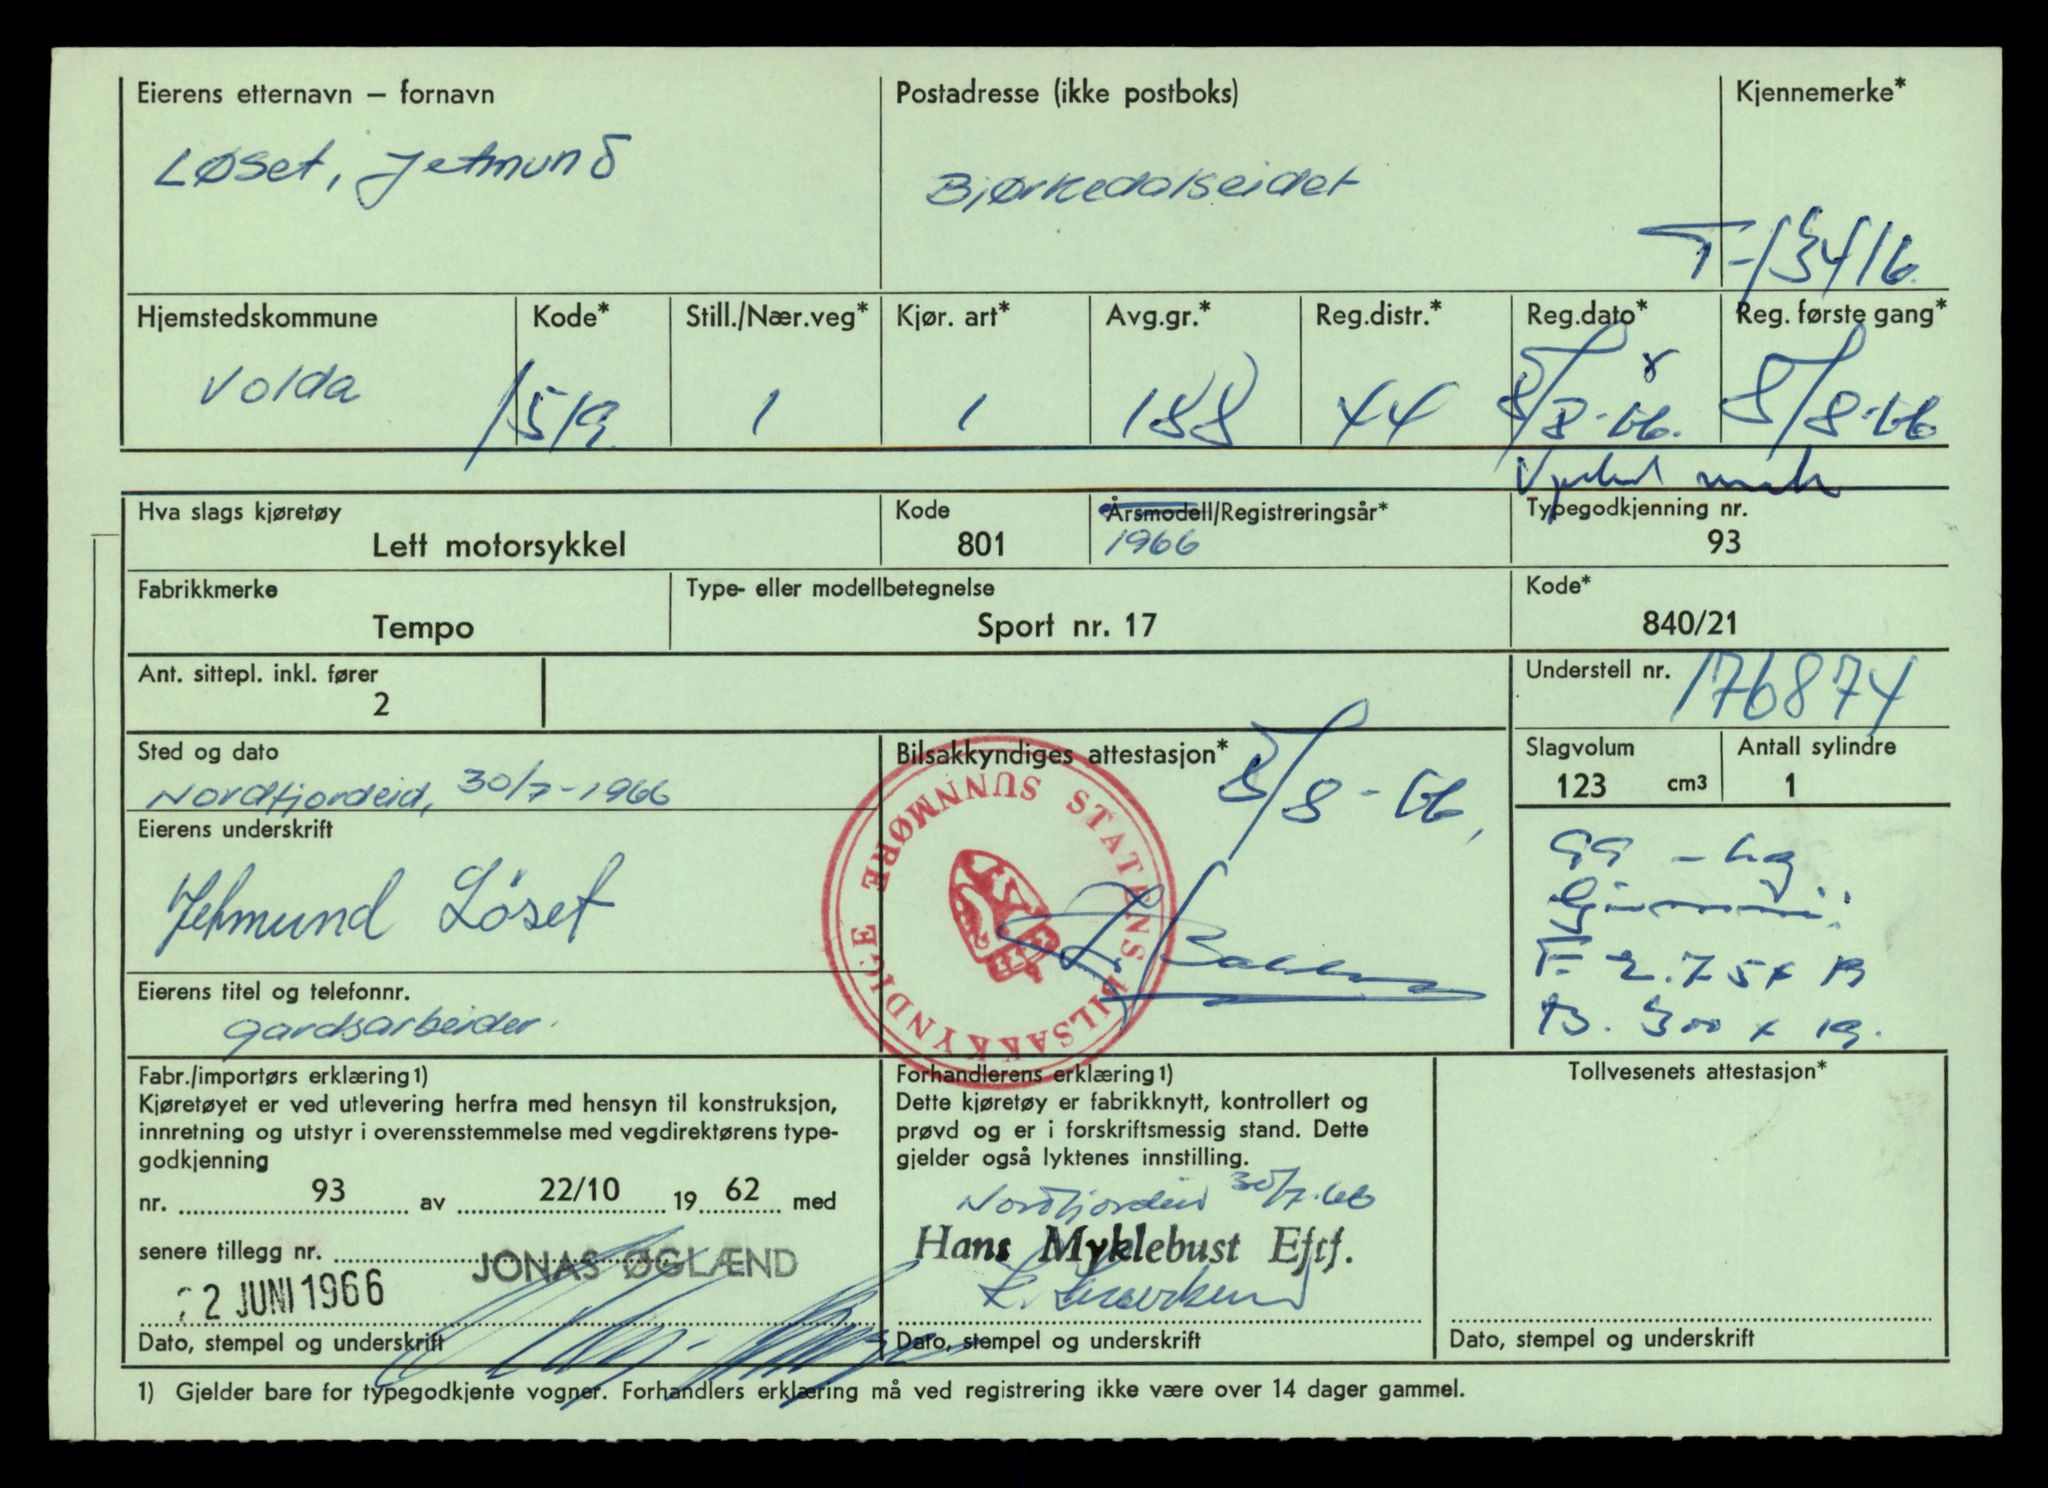 Eierens etternavn – fornavn
Løset, Jetmund
Postadresse (ikke postboks)
Bjørkedalseidet
Kjennemerke*
T-13416
Hjemstedskommune
Volda
Kode*
1519
Still./Nær.veg*
1
Kjør. art*
1
Avg.gr.*
188
Reg.distr.*
44
Reg.dato*
8/8-66.
Reg. første gang*
8/8-66
Hva slags kjøretøy
Lett motorsykkel
Kode
801
Årsmodell/Registreringsår*
1966
Typegodkjenning nr.
93
Fabrikkmerke
Tempo
Type- eller modellbetegnelse
Sport nr. 17
Kode*
840/21
Ant. sittepl. inkl. fører
2
Understell nr.
176874
Sted og dato
Nordfjordeid, 30/7-1966
Bilsakkyndiges attestasjon*
8/8-66,
STATENS BILSAKKYNDIGE SUNNMØRE
Slagvolum
123 cm3
Antall sylindre
1
Eierens underskrift
Jetmund Löset
99 - kg
Gummi:
F. 2.75 x 19
B. 300 x 19.
Eierens titel og telefonnr.
gardsarbeider
Fabr./importørs erklæring1)
Kjøretøyet er ved utlevering herfra med hensyn til konstruksjon,
innretning og utstyr i overensstemmelse med vegdirektørens type-
godkjenning
nr. 93 av 22/10 19 62 med
senere tillegg nr.
JONAS ØGLÆND
22 JUNI 1966
Dato, stempel og underskrift
Forhandlerens erklæring1)
Dette kjøretøy er fabrikknytt, kontrollert og
prøvd og er i forskriftsmessig stand. Dette
gjelder også lyktenes innstilling.
Nordfjordeid 30/7-66
Hans Myklebust Eftf.
Dato, stempel og underskrift
Tollvesenets attestasjon*
Dato, stempel og underskrift
1) Gjelder bare for typegodkjente vogner. Forhandlers erklæring må ved registrering ikke være over 14 dager gammel.